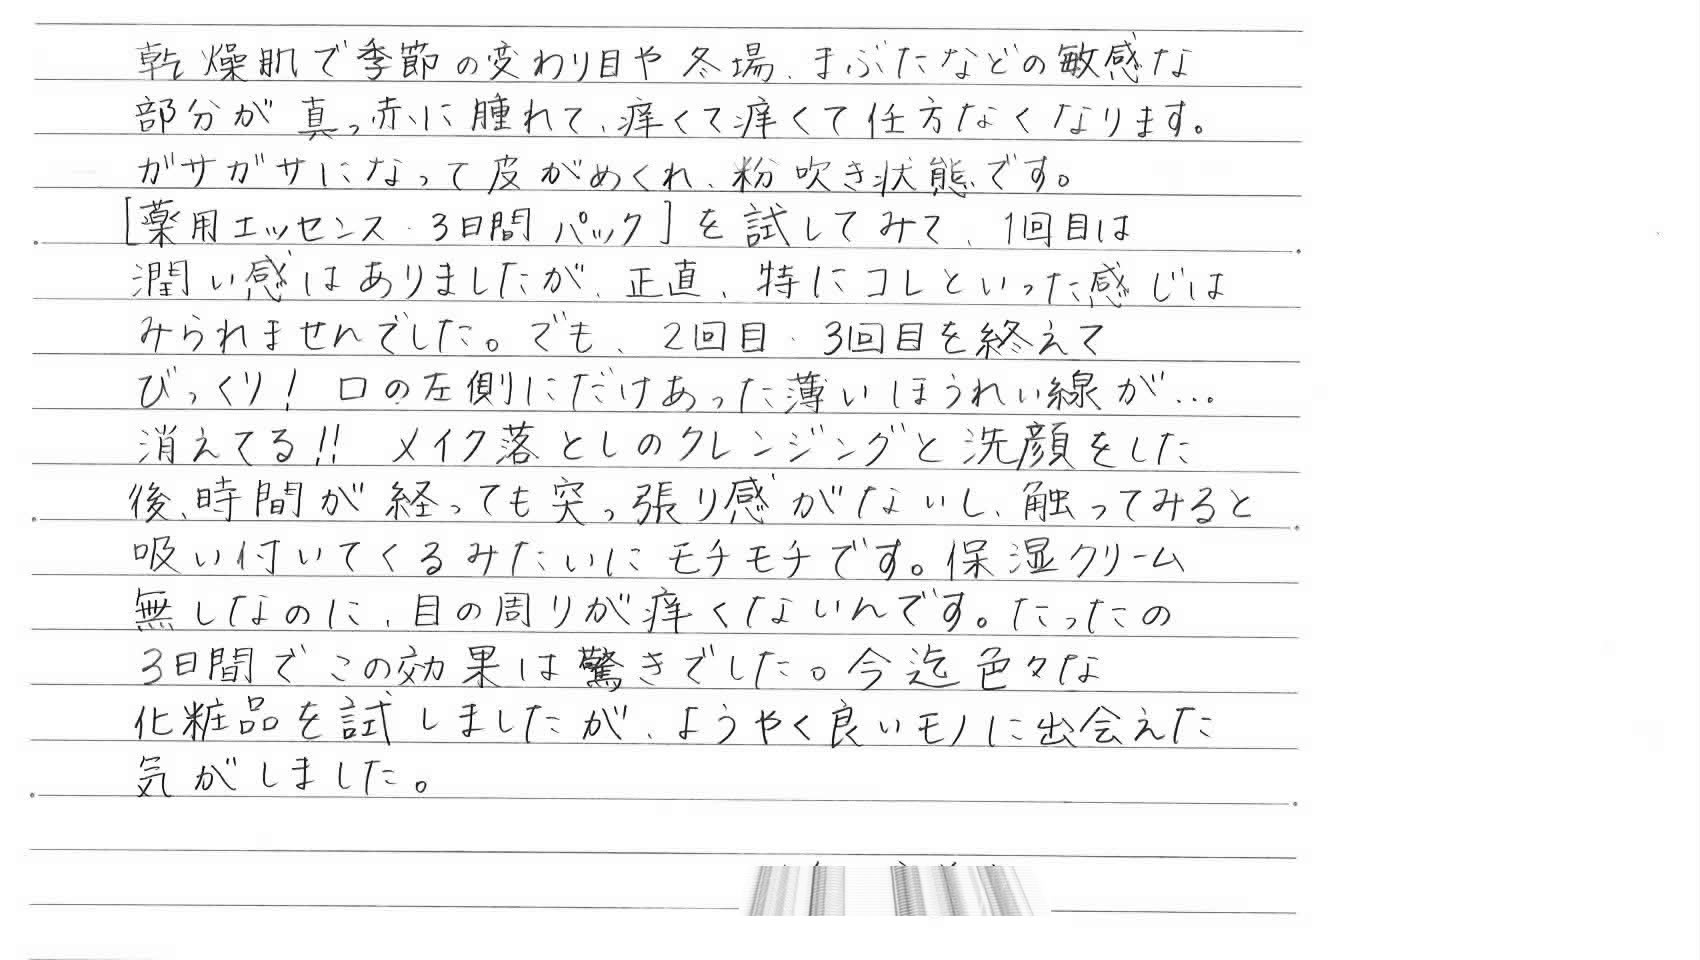 乾燥肌で季節の変わり目や冬場、まぶたなどの敏感な
部分が真っ赤に腫れて、痒くて痒くて仕方なくなります。
ガサガサになって皮がめくれ、粉吹き状態です。
[薬用エッセンス・3日間パック]を試してみて、1回目は
潤い感はありましたが、正直、特にコレといった感じは
みられませんでした。でも、2回目・3回目を終えて
びっくり!口の左側にだけあった薄いほうれい線が…
消えてる!!メイク落としのクレンジングと洗顔をした
後、時間が経っても突っ張り感がないし、触ってみると
吸い付いてくるみたいにモチモチです。保湿クリーム
無しなのに、目の周りが痒くないんです。たったの
3日間でこの効果は驚きでした。今迄色々な
化粧品を試しましたが、ようやく良いモノに出会えた
気がしました。